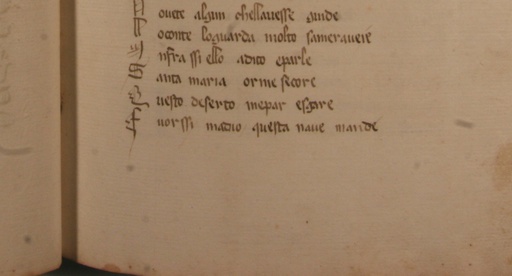 oute algun chellauesse guide
oconte loguarda molto sameraueie
Infra ssi ello adito eparle
Santa maria or me secore
Questo deserto mepar esgare
Fuor ssi madio questa naue mande